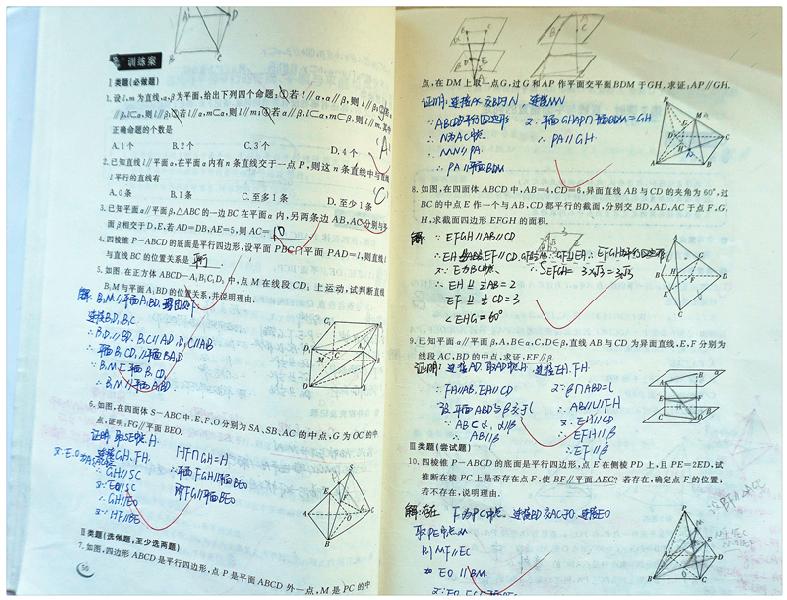 训练案
Ⅰ类题(必做题)
1.设l,m为直线,α,β为平面,给出下列四个命题:①若l∥α,α∥β,则l∥β;②若
l∥β,l⊂α,则 ③若l∥α,m⊂α,则l∥m;④若α∥β,l⊂α,m⊂β,则l∥m.其中
正确命题的个数是
A.1个 B.2个 C.3个 D.4个
A
2.已知直线l∥平面α,在平面α内有n条直线交于一点P,则这n条直线中与直线
l平行的直线有
C
A.0条 B.1条 C.至多1条 D.至少1条
3.已知平面α∥平面β,△ABC的一边BC在平面α内,另两条边AB,AC分别与平
面β相交于D,E,若AD=DB,AE=5,则AC= 10
4.四棱锥P-ABCD的底面是平行四边形,设平面PBC∩平面PAD=l,则直线l
与直线BC的位置关系是 平行
5.如图,在正方体ABCD-A₁B₁C₁D₁中,点M在线段CD₁上运动,试判断直线
B₁M与平面A₁BD的位置关系,并说明理由.
解: B₁M∥平面A₁BD, 理由如下:
连接B₁D₁,B₁C
∴B₁D₁∥BD, B₁C∥A₁D
∴平面B₁CD₁∥平面BA₁D
∵B₁M⊂平面B₁CD₁
∴B₁M∥平面A₁BD
6.如图,在四面体S-ABC中,E,F,O分别为SA,SB,AC的中点,G为OC的中
点,证明:FG∥平面BEO.
证明: 取SE中点H
连接GH,FH. HF∩GH=H
∴GH∥SC ∴平面FGH∥平面BEO
∵EO∥SC 即FG∥平面BEO
∴GH∥EO
又∵HF∥BE
Ⅱ类题(选做题,至少选两题)
7.如图,四边形ABCD是平行四边形,点P是平面ABCD外一点,M是PC的中
56
点,在DM上取一点G,过G和AP作平面交平面BDM于GH,求证:AP∥GH.
证明: 连接AC交BD于N, 连接MN
∵ABCD为平行四边形 又∵平面GHAP∩平面BDM=GH
∴N为AC中点 ∴PA∥GH
∴MN∥PA
∴PA∥平面BDM
8.如图,在四面体ABCD中,AB=4,CD=6,异面直线AB与CD的夹角为60°,过
BC的中点E作一个与AB,CD都平行的截面,分别交BD,AD,AC于点F,G,
H,求截面四边形EFGH的面积.
解
∵EFGH∥AB∥CD
又∵E为BC中点 ∴SEFGH=3×√3=3√3
∴EH ⫽ ½AB=2
EF ⫽ ½CD=3
∠EHG=60°
9.已知平面α∥平面β,A,B∈α,C,D∈β,直线AB与CD为异面直线,E,F分别为
线段AC,BD的中点,求证:EF∥β.
证明: 连接AD,取AD中点H, 连接EH,FH
∴FH∥AB,EH∥CD 又∵β∩ABD=l
设平面ABD与β交于l ∴AB∥l∥FH
∵AB⊂α,α∥β 又∵EH∥CD
∴AB∥β ∴EFH∥β
∴EF∥β
Ⅲ类题(尝试题)
10.四棱锥P-ABCD的底面是平行四边形,点E在侧棱PD上,且PE=2ED,试
推断在棱PC上是否存在点F,使BF∥平面AEC?若存在,确定点F的位置,
若不存在,说明理由.
解:存在 F为PC中点, 连接BD交AC于O, 连接EO
取PE中点M
则MF∥EC
∵EO∥BM